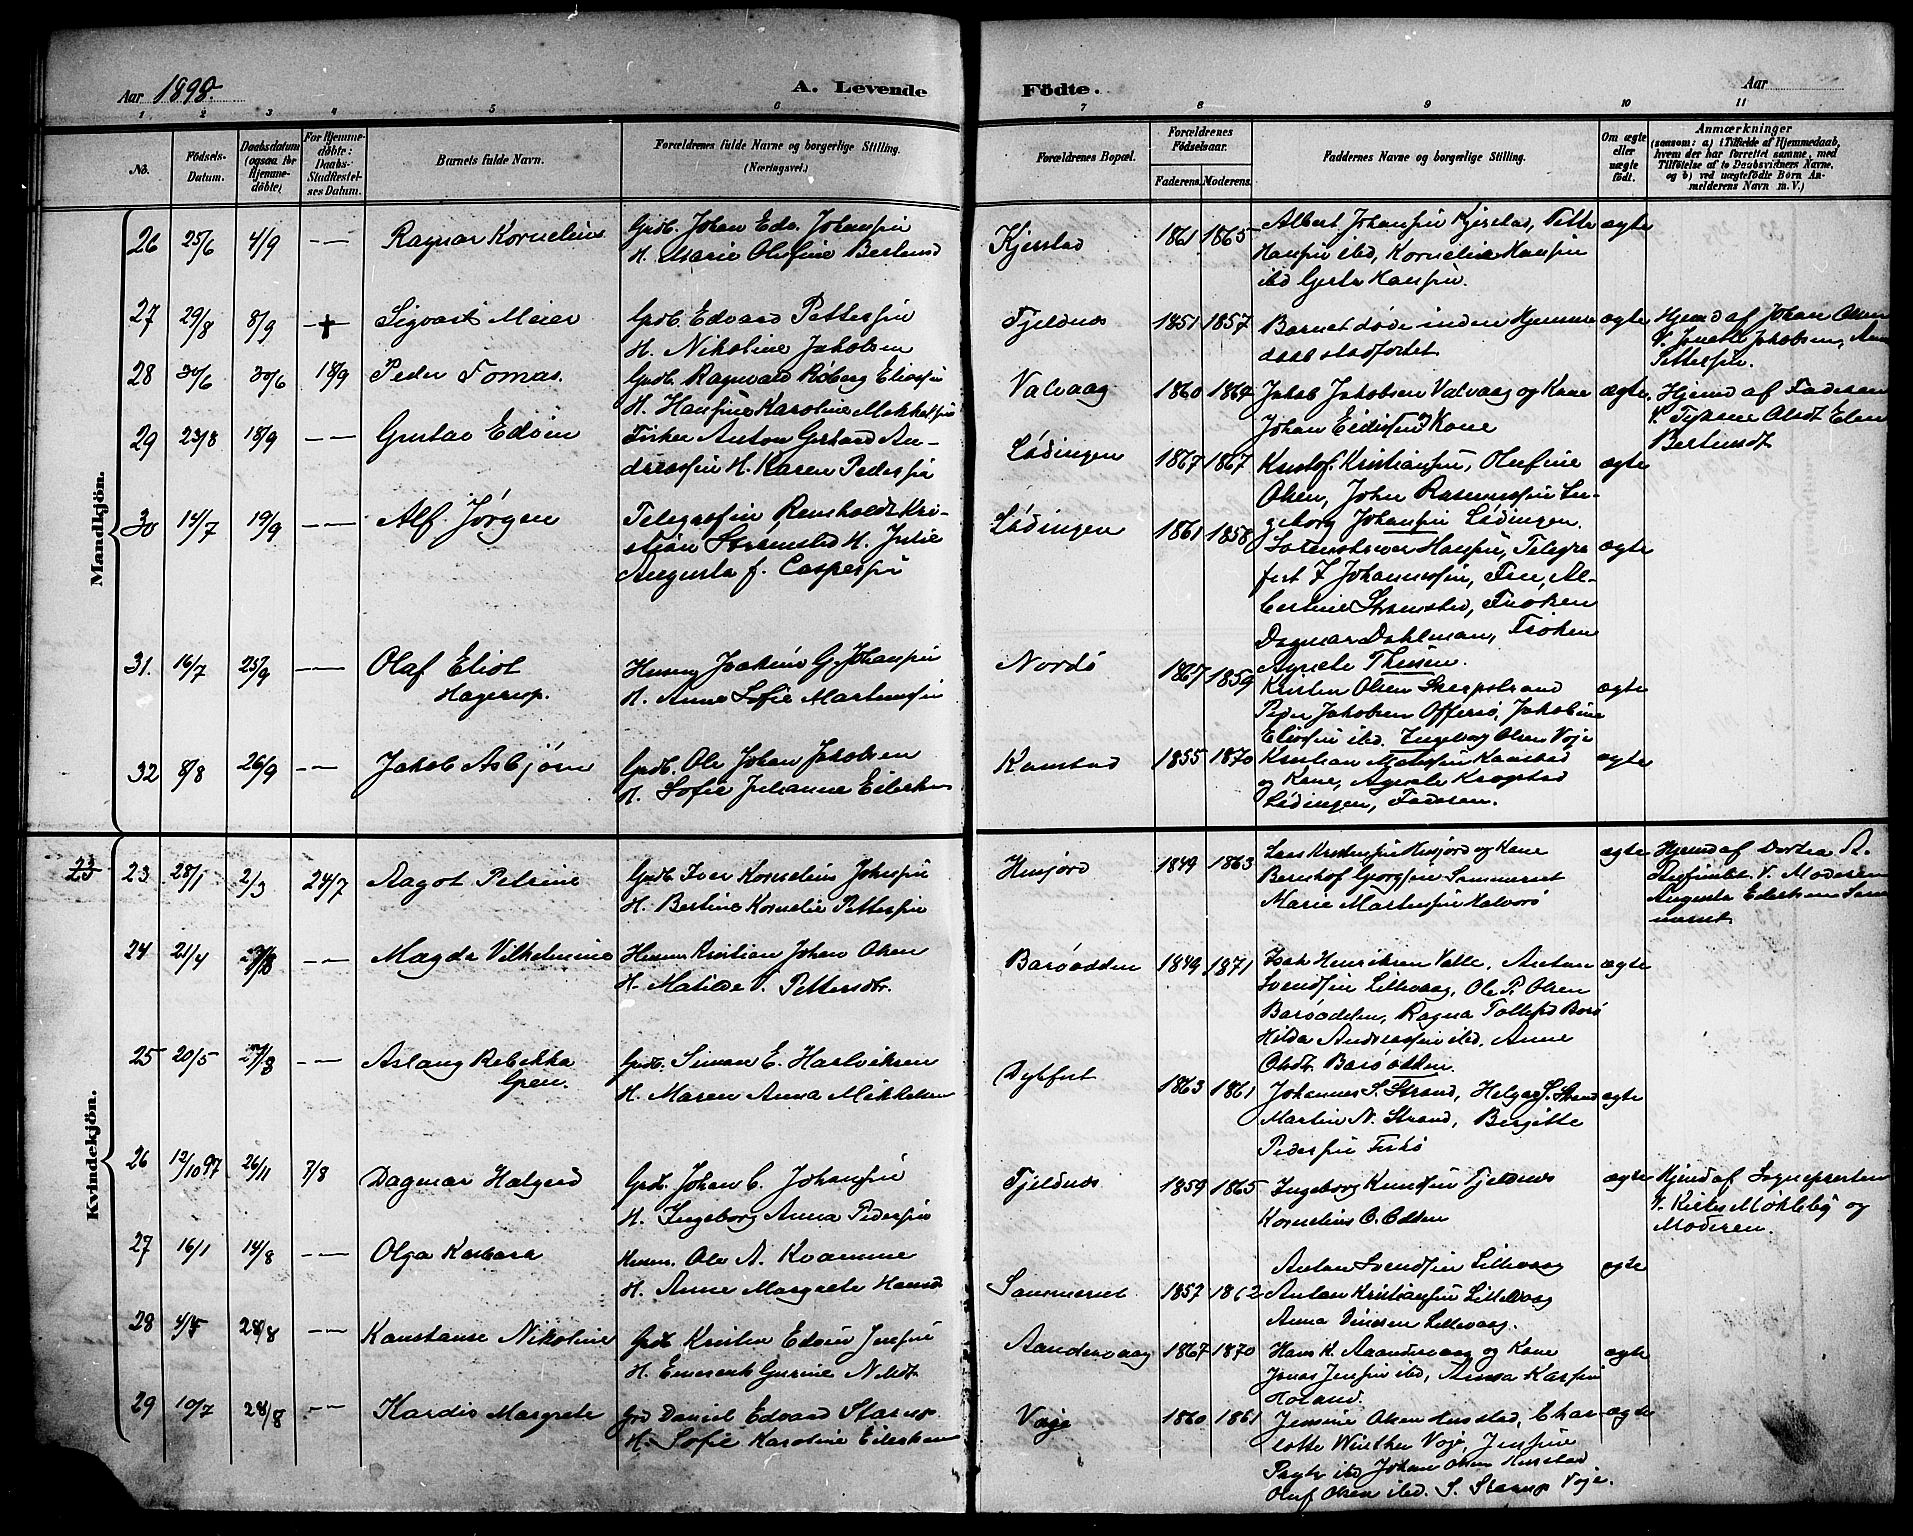 Aar 1898. A. Levende Födte. Aar
1 2 3 4 5 6 7 8 9 10 11
No.
Födsels-Datum.
Daabsdatum (ogsaa for Hjemmedöbte)
For Hjemmedöbte: Daabs-Stadfæstelses Datum.
Barnets fulde Navn.
Forældrenes fulde Navne og borgerlige Stilling. (Næringsvei.)
Forældrenes Bopæl.
Forældrenes Födselsaar.
Faderens. Moderens.
Faddernes Navne og borgerlige Stilling.
Om ægte eller uægte födt.
Anmærkninger
(saasom: a) i Tilfælde af Hjemmedaab,
hvem der har forrettet samme, med
Tilföielse af to Daabsvidners Navne,
og b) ved uægtefödte Börn Anmelderens Navn m. V.)
Mandkjön.
26 25/6 4/9 — — Ragnar Kornelius Grdb. Johan Edv. Johansen
H. Marie Olufine Bertsend
Kjerstad 1861 1865 Albert Johansen Kjerstad, Petter
Hansen ibd, Kornelie Hansen
ibd Gerta Hansen. ægte
27 29/8 8/9 + Sigvart Meier Grdb. Edvard Pettersen
H. Nikoline Jakobsen
Fjeldnes 1851 1857 Barnet døde inden Hjemmedaab stadfæstet. ægte
Hjemd af Johan Olsen
V. Jakobsen,
Pettersen.
28 30/6 30/6 18/9 Peder Tomas. Grdb. Ragnvald Røberg Eliassen
H. Hansine Karoline Mikkelsen
Valvaag 1860 1864 Jakob Jakobsen Valvaag og Kone
Johan Kone ægte.
Hjemd af Faderen
V. Olsdt Elen
Bertsendt
29 23/8 18/9 — — Gustav Edvin Fisker Anton Gerhard Andreassen H. Karen Pedersen
Lødingen 1867 1867 Kristof. Kristiansen, Olufine
Olsen, John Rasmussen Ingeborg Johansen Lødingen. ægte
30 14/7 19/9 — — Alf Jørgen Reinholdt Kristian Strømsted H. Julie
Augusta f. Caspersen
Lødingen 1861 1858 Hansen, Telegrafist F Johannessen, Fru Albertine Strømsted, Frøken
Dagmar Dahlman, Frøken
Agnete Thiesen. ægte
31. 16/7 25/9 — — Olaf Eliot
Hagerup.
Husm. Joakim G. Johansen
H. Anne Sofie Martinsen
Nordø 1867 1859 Kristen Olsen Skarpstrand
Peder Jakobsen Offersø, Jakobine
Eliassen ibd. Ingeborg Olsen Voje ægte
32 8/8 26/9 — — Jakob Asbjørn Grdb. Ole Johan Jakobsen
H. Sofie Julianne Eilertsen
Kanstad 1855 1870 Kristian Kanstad
og Kone, Agnete Kragstad
Lødingen, Faderen. ægte
Kvindekjön.
23 23 28/1 2/3 24/7 Aagot Petrine Grdb. Iver Kornelius Johnsen
H. Bertine Kornelie Pettersen
Husjord 1849 1863 Lars Kristensen Husjord og Kone
Bernhof Georgsen Sommerset
Marie Martinsen Kalvøro ægte
Hjemd af Dortea A.
V. Moderen
Augusta Eilertsen Sommerset.
24 21/4 — — Magda Vilhelmine Husm Kristian Johan Olsen
H. Matilde V. Pettersdtr.
Barøodden 1849 1871 Isak Henriksen Valle, Anton
Svendsen Lillevaag, Ole P. Olsen
Barøodden, Ragna Tollefsd Barø
Hilda Andreassen ibd, Anne
Olsdtr Barøodden. ægte
25 20/5 7/8 — — Aslaug Rebekka
Gren.
Grdb. Simon E. Hartviksen
H. Maren Anna Mikkelsen
Dybfest 1863 1861 Johannes S. Strand, Helga S. Strand
Martin N. Strand, Bergitte
Pedersen Fiskø ægte
26 12/10 97 26/11 7/8 Dagmar Halgerd Grdb. Johan C. Johansen
H. Ingeborg Anna Pedersen
Fjeldnes 1859 1865 Ingeborg Knudsen Fjeldnes
Kornelius O. Odden ægte
Hjemd af Sognepresten
V. Møkleby og
Moderen.
27 16/1 14/8 — — Olga Barbara Husm. Ole A. Kvamme
H. Anne Margrete Hansd
Sommerset 1857 1862 Anton Svendsen Lillevaag
Anton Kristiansen Lillevaag
Anna Lillevaag. ægte
28 4/5 28/8 — — Konstanse Nikoline Grdb Kristen Edvin Jensen
H. Emerents Gurine Nilsdt.
Aandervaag 1867 1870 Hans K. Aandervaag og Kone
Jonas Jensen ibd, Anna Karsen
Hotand. ægte
29 10/7 28/8 — — Hardis Margrete Grd Daniel Edvard Starup
H. Sofie Karoline Eilertsen
Voje 1860 1861 Jensine Olsen Husstad, Charlotte Winther Voje, Jensine
ibd Johan Olsen Husstad
Oluf Olsen ibd. S. Starup Voje. ægte